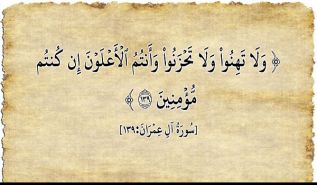 ﴿ وَلَا تَهِنُوا۟ وَلَا تَحْزَنُوا۟ وَأَنتُمُ ٱلْأَعْلَوْنَ إِن كُنتُم
مُّؤْمِنِينَ ۝١٣٩ ﴾
[سُورَةُ آلِ عِمْرَانَ:١٣٩]